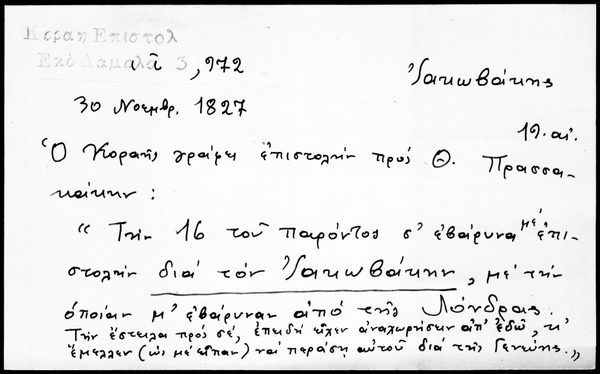 Κοραῆ Ἐπιστολ
Ἐκδ Δαμαλᾶ 3, 972
Ἰακωβάκης
30 Νοεμβρ. 1827
19. αἰ.
Ὁ Κοραῆς γράφει ἐπιστολὴν πρὸς Θ. Πρασσα-
κάκην :
" Τὴν 16 τοῦ παρόντος σ' ἐβάρυνα μὲ ἐπι-
στολὴν διὰ τὸν Ἰακωβάκην, μὲ τὴν
ὁποίαν μ' ἐβάρυναν ἀπὸ τῆς Λόνδρας.
Τὴν ἔστειλα πρὸς σέ, ἐπειδὴ εἶχεν ἀναχωρήσειν ἀπ' ἐδῶ, κ'
ἔμελλεν (ὡς μὲ εἶπαν) νὰ περάσῃ αὐτοῦ διὰ τῆς Γενεύης. "